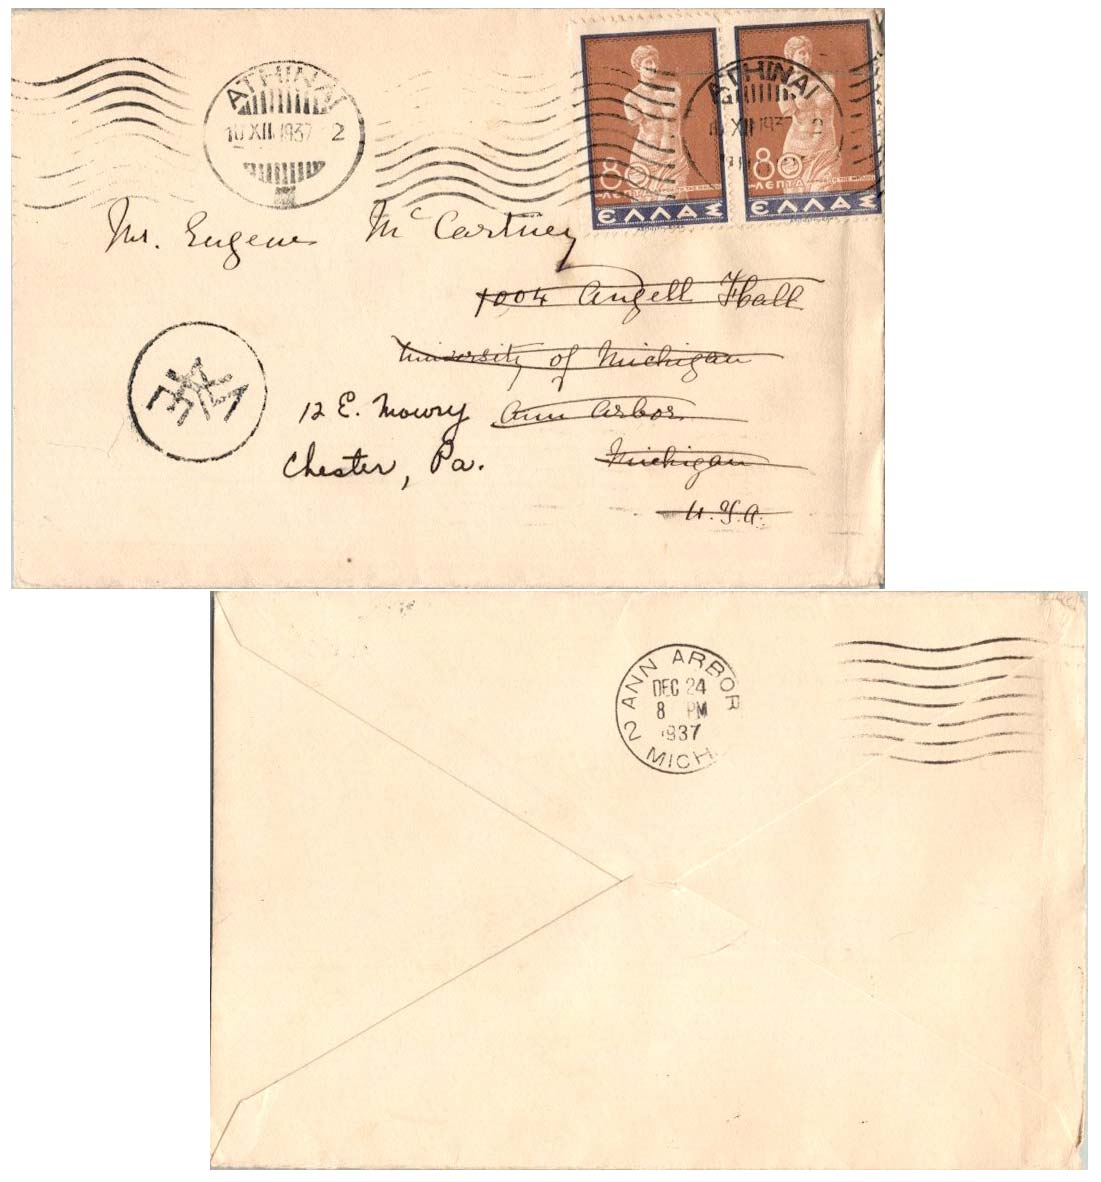 ATHINAI
10 XII 1937 2
ATHINAI
10 XII 1937 2
80
ΛΕΠΤΑ
ΕΛΛΑΣ
80
ΛΕΠΤΑ
ΕΛΛΑΣ
Mr. Eugene McCartney
1004 Angell Hall
University of Michigan
12 E. Mowry Ann Arbor
Chester, Pa. Michigan
U.S.A.
2 ANN ARBOR
DEC 24
8 PM
1937
MICH.